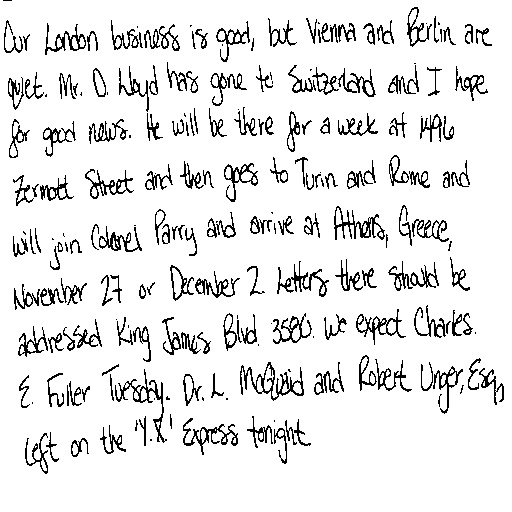 Our London business is good, but Vienna and Berlin are
quiet. Mr. D. Lloyd has gone to Switzerland and I hope
for good news. He will be there for a week at 1496
Zermott Street and then goes to Turin and Rome and
will join Colonel Parry and arrive at Athens, Greece,
November 27 or December 2. Letters there should be
addressed King James Blvd. 3580. We expect Charles
E. Fuller Tuesday. Dr. L. McQuaid and Robert Unger, Esq.,
left on the 'Y.X.' Express tonight